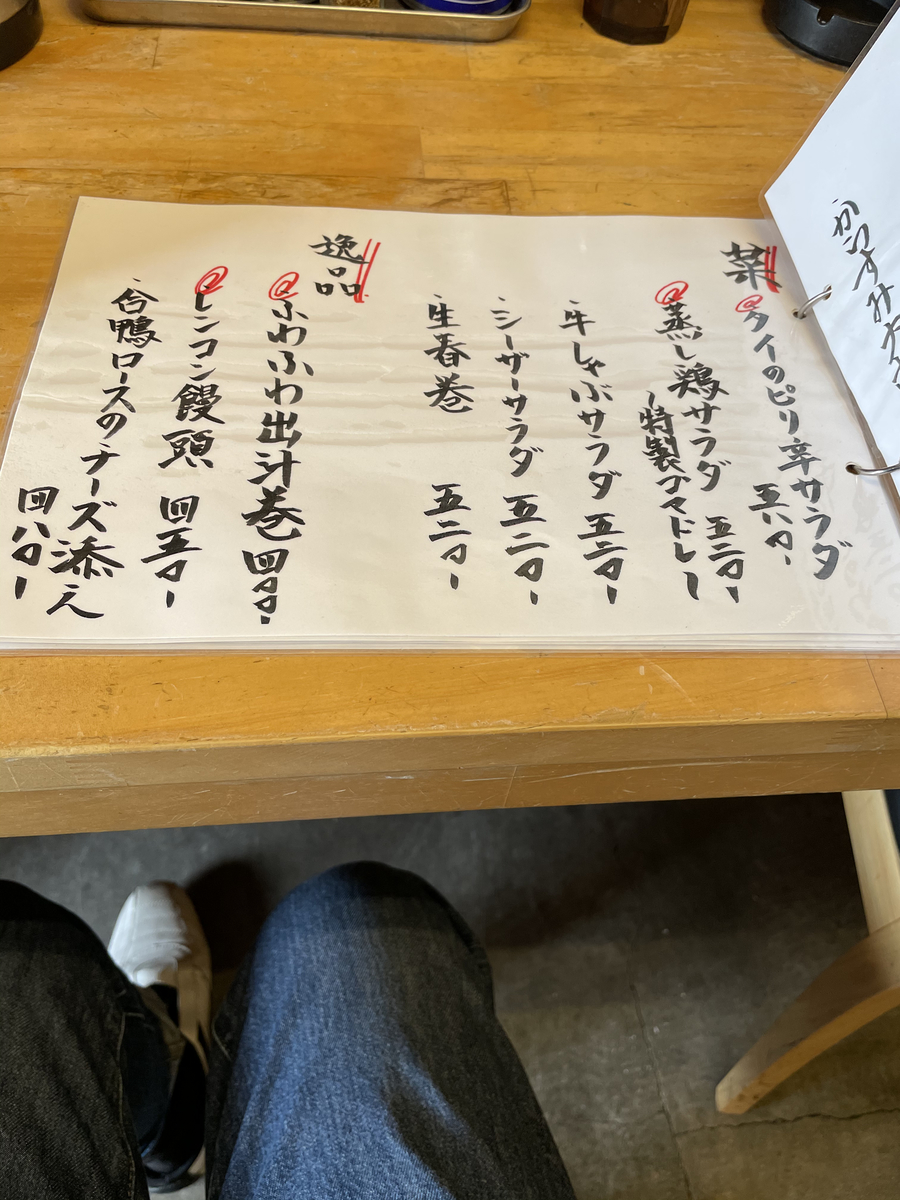 菜
タイのピリ辛サラダ
五八〇-
蒸し鶏サラダ
~特製ゴマドレ~
五二〇-
・牛しゃぶサラダ 五二〇-
・シーザーサラダ 五二〇-
・生春巻 五二〇-
逸品
ふわふわ出汁巻 四〇〇-
レンコン饅頭 四五〇-
・合鴨ロースのチーズ添え
四八〇-